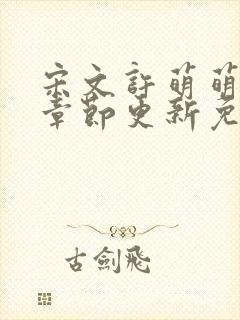 宋文許萌萌
章節更新免
古劍飛